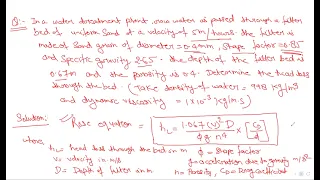 Q:- In a water treatment plant, raw water is passed through a filter
bed of uniform sand at a velocity of 5m/hour. the filter is
made of sand grain of diameter = 0.4mm, shape factor = 0.85
and specific gravity 2.65. The depth of the filter bed is
0.67m and the porosity is 0.4. Determine the head loss
through the bed. (Take density of water = 998 kg/m³
and dynamic viscosity = 1×10⁻³ kg/m·s)
Solution:- Rose equation = hL = 1.067 (V)² D / φ g n⁴ × [CD / d]
where, hL = head loss through the bed in m φ = Shape factor
V = velocity in m/s g = acceleration due to gravity
D = Depth of filter in m n = Porosity, CD = Drag coefficient